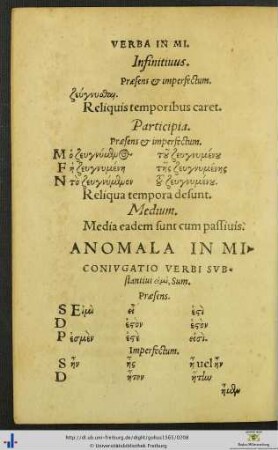 VERBA IN MI.
Infinitiuus.
Præsens & imperfectum.
ζεύγνυσθαι.
Reliquis temporibus caret.
Participia.
Præsens & imperfectum.
M ὁ ζευγνύμενος τοῦ ζευγνυμένου
F ἡ ζευγνυμένη τῆς ζευγνυμένης
N τὸ ζευγνύμενον τοῦ ζευγνυμένου.
Reliqua tempora desunt.
Medium.
Media eadem sunt cum passiuis.
ANOMALA IN MI
CONIVGATIO VERBI SVB-
stantiui εἰμὶ, Sum.
Præsens.
S Εἰμὶ εἶ ἐστὶ
D ἐστὸν ἐστὸν
P ἐσμὲν ἐστὲ εἰσὶ.
Imperfectum.
S ἦν ἦς ἦ uel ἦν
D ἦτον ἤτην
ἦμεν
http://dl.ub.uni-freiburg.de/diglit/golius1562/0208
© Universitätsbibliothek Freiburg